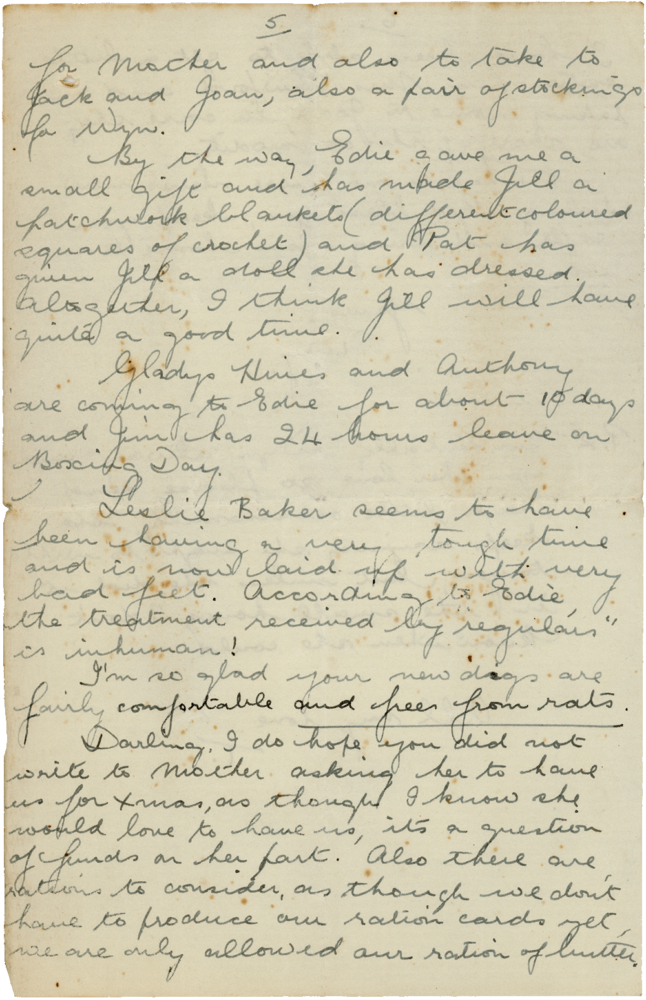 5
for Mother and also to take to
Jack and Joan, also a pair of stockings
for Wyn.
By the way, Edie gave me a
small gift and has made Jill a
patchwork blankets (different coloured
squares of crochet) and Pat has
given Jill a doll she has dressed.
Altogether, I think Jill will have
quite a good time.
Gladys Hines and Anthony
are coming to Edie for about 10 days
and Jim has 24 hours leave on
Boxing Day.
Leslie Baker seems to have
been having a very tough time
and is now laid up with very
bad feet. According to Edie,
the treatment received by "regulars"
is inhuman!
I'm so glad your new digs are
fairly comfortable and free from rats.
Darling, I do hope you did not
write to Mother asking her to have
us for Xmas, as though I know she
would love to have us, its a question
of funds on her part. Also there are
rations to consider, as though we don't
have to produce our ration cards yet,
we are only allowed our ration of butter.